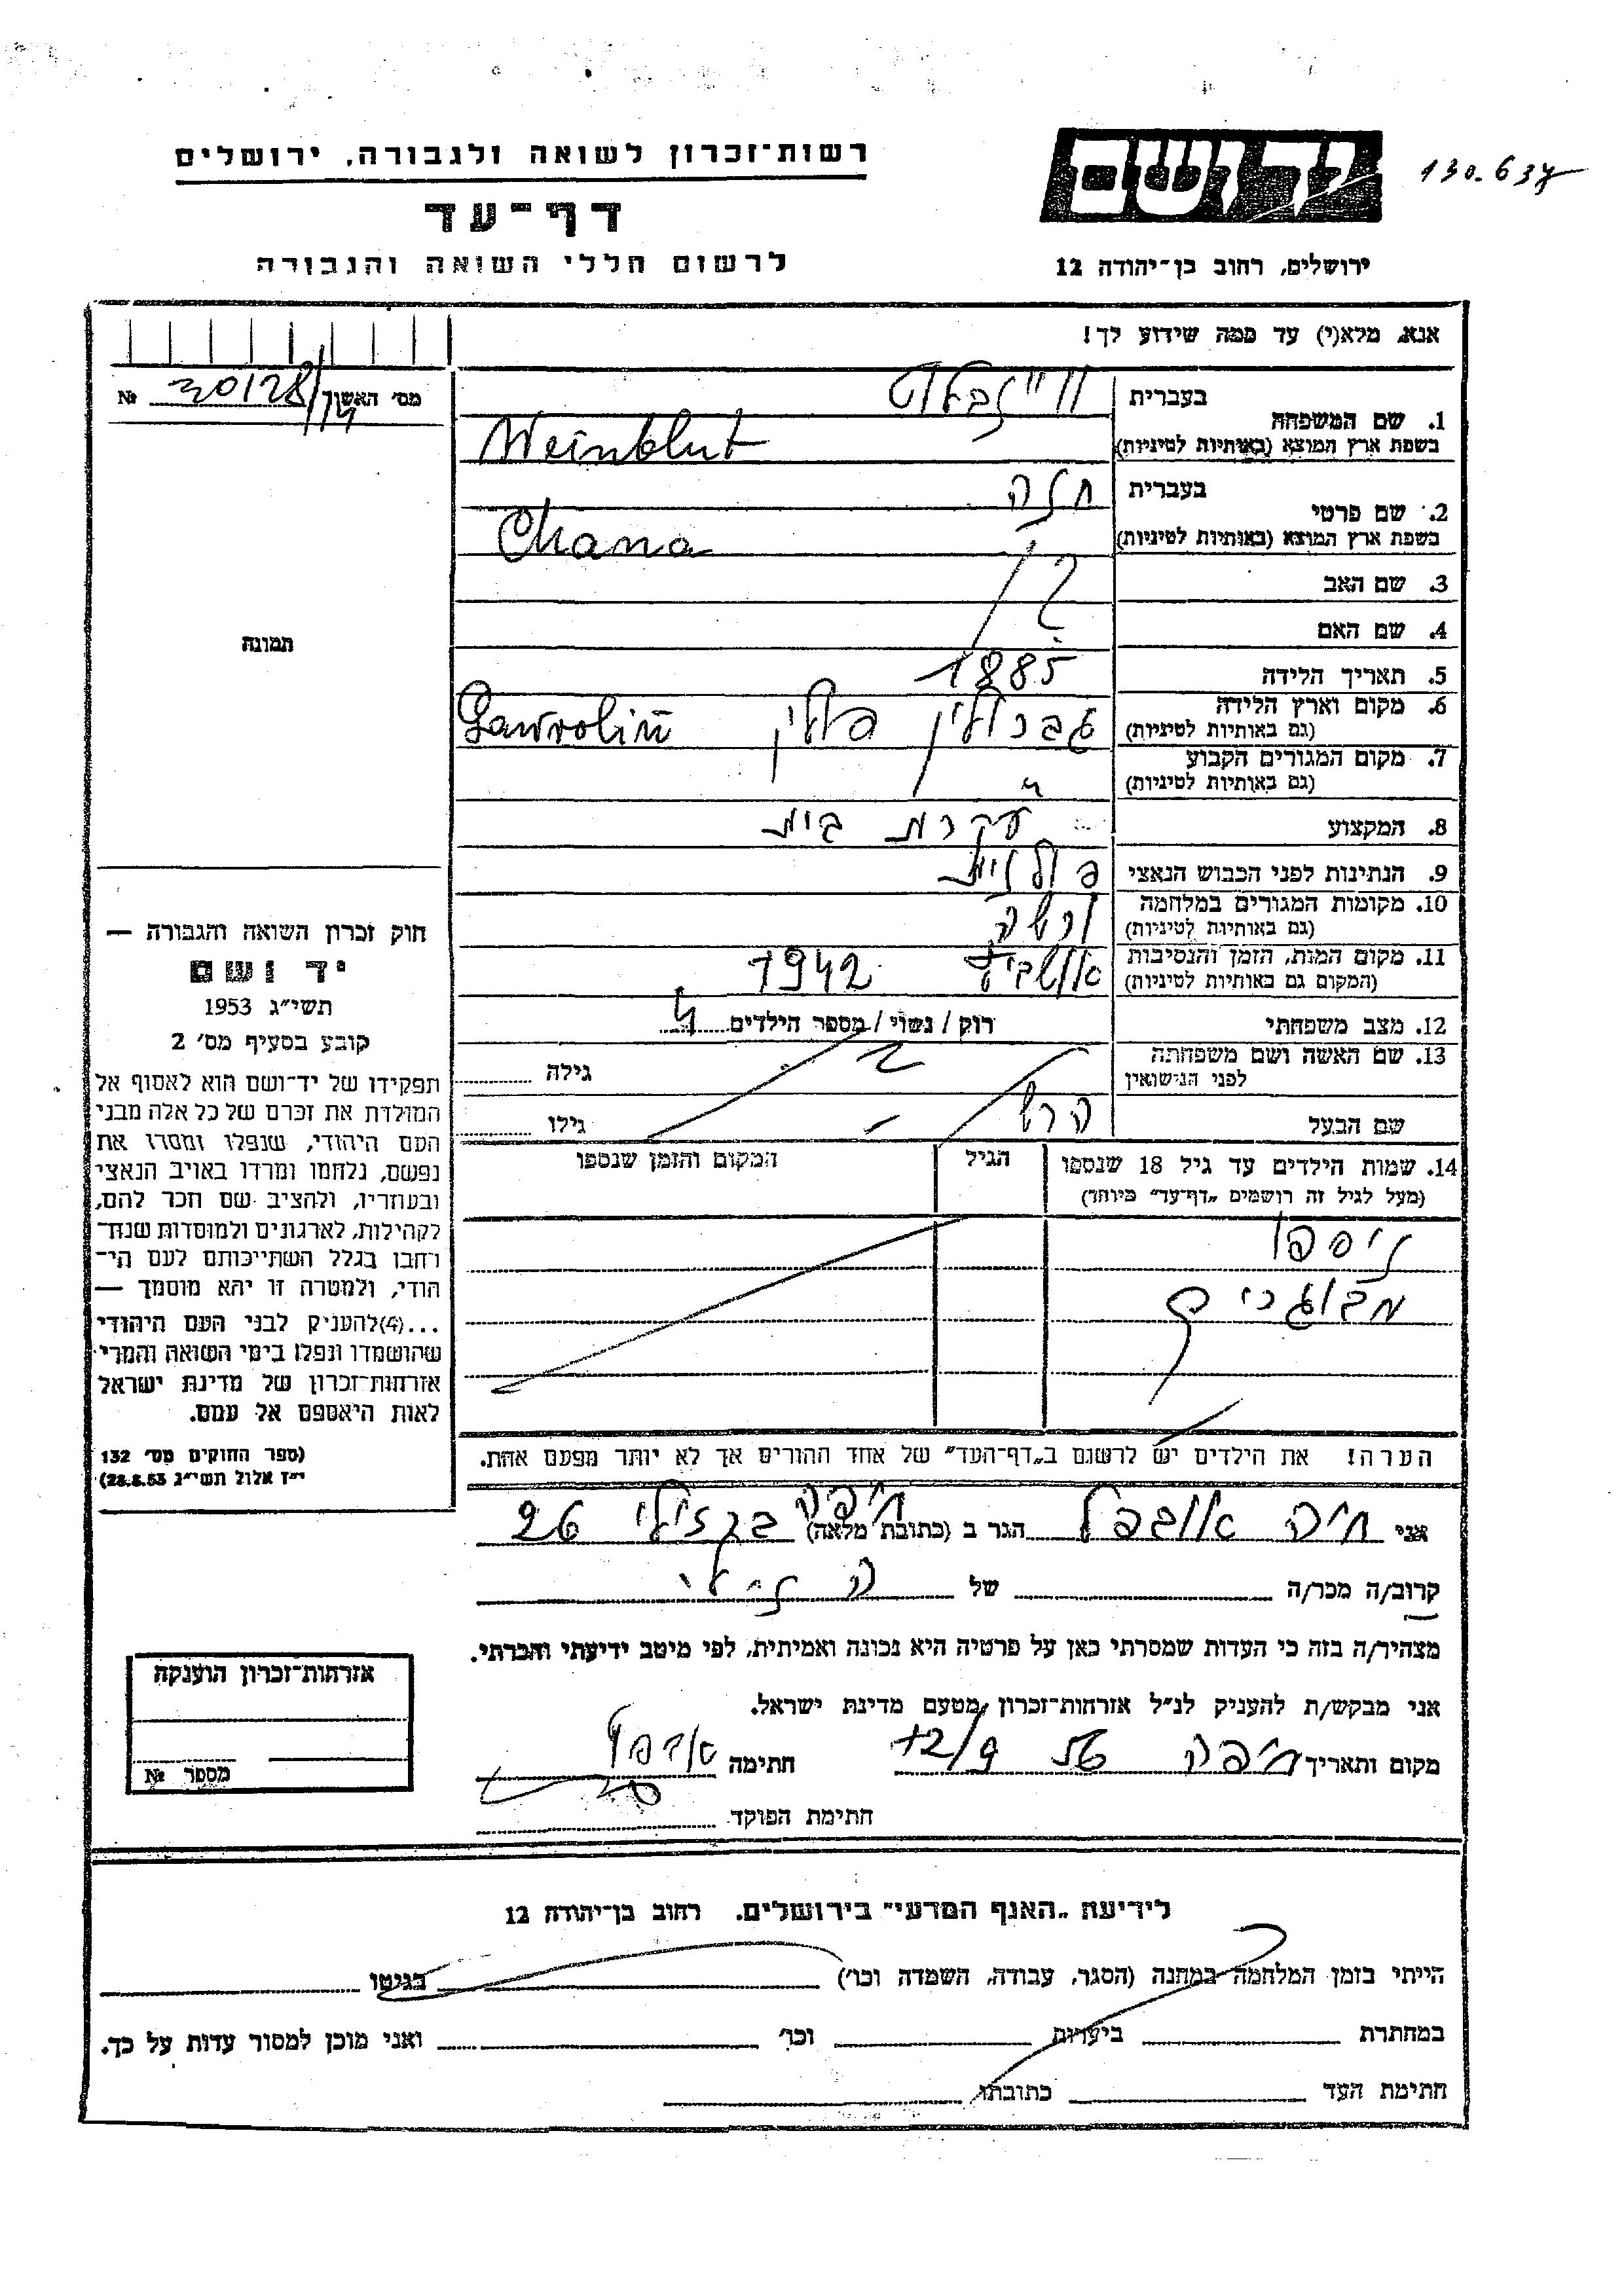 רשות־זכרון לשואה ולגבורה, ירושלים
130.637
דף־עד
לרשום חללי השואה והגבורה
ירושלים, רחוב בן־יהודה 12
אנא, מלא(י) עד כמה שידוע לך!
מס' האשור 30128/14 №
1. שם המשפחה
בעברית וויינבלוט
בשפת ארץ המוצא (באותיות לטיניות) Weinblut
2. שם פרטי
בעברית חנה
בשפת ארץ המוצא (באותיות לטיניות) Chana
3. שם האב
4. שם האם
תמונה
5. תאריך הלידה 1885
6. מקום וארץ הלידה
(גם באותיות לטיניות) פולין Gawroliñ
7. מקום המגורים הקבוע
(גם באותיות לטיניות) "
8. המקצוע עקרת בית
9. הנתינות לפני הכבוש הנאצי פולנית
10. מקומות המגורים במלחמה
(גם באותיות לטיניות) ורשה
11. מקום המות, הזמן והנסיבות
(המקום גם באותיות לטיניות) אושביץ 1942
12. מצב משפחתי רוק / נשוי / מספר הילדים 4
13. שם האשה ושם משפחתה
לפני הנישואין גילה
שם הבעל הרש גילו
14. שמות הילדים עד גיל 18 שנספו
(מעל לגיל זה רושמים „דף־עד" מיוחד)
הגיל
המקום והזמן שנספו
ניספו
מבוגרים
הערה! את הילדים יש לרשום ב„דף־העד" של אחד ההורים אך לא יותר מפעם אחת.
חוק זכרון השואה והגבורה —
יד ושם
תשי"ג 1953
קובע בסעיף מס' 2
תפקידו של יד־ושם הוא לאסוף אל
המולדת את זכרם של כל אלה מבני
העם היהודי, שנפלו ומסרו את
נפשם, נלחמו ומרדו באויב הנאצי
ובעוזריו, ולהציב שם וזכר להם,
לקהילות, לארגונים ולמוסדות שנח־
רחבו בגלל השתייכותם לעם הי־
הודי, ולמטרה זו יהא מוסמך —
...(4)להעניק לבני העם היהודי
שהושמדו ונפלו בימי השואה והמרי
אזרחות־זכרון של מדינת ישראל
לאות היאספם אל עמם.
(ספר החוקים מס' 132
י"ז אלול תשי"ג 28.8.53)
אני חיה הגר ב (כתובת מלאה) חיפה ברזילי 26
קרוב/ה מכר/ה של
מצהיר/ה בזה כי העדות שמסרתי כאן על פרטיה היא נכונה ואמיתית, לפי מיטב ידיעתי והכרתי.
אני מבקש/ת להעניק לנ"ל אזרחות־זכרון מטעם מדינת ישראל.
מקום ותאריך חיפה 12/9 56 חתימה
חתימת הפוקד
אזרחות־זכרון הוענקה
מספר №
לידיעת „האגף המדעי" בירושלים. רחוב בן־יהודה 12
הייתי בזמן המלחמה במחנה (הסגר, עבודה, השמדה וכו') בגיטו
במחתרת ביערות וכו' ואני מוכן למסור עדות על כך.
חתימת העד כתובתו